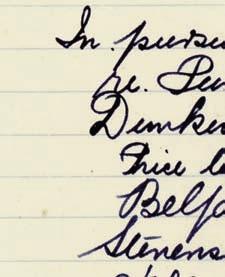 In purs
re. Pu
Dunke
Price l
Belf
Stevens